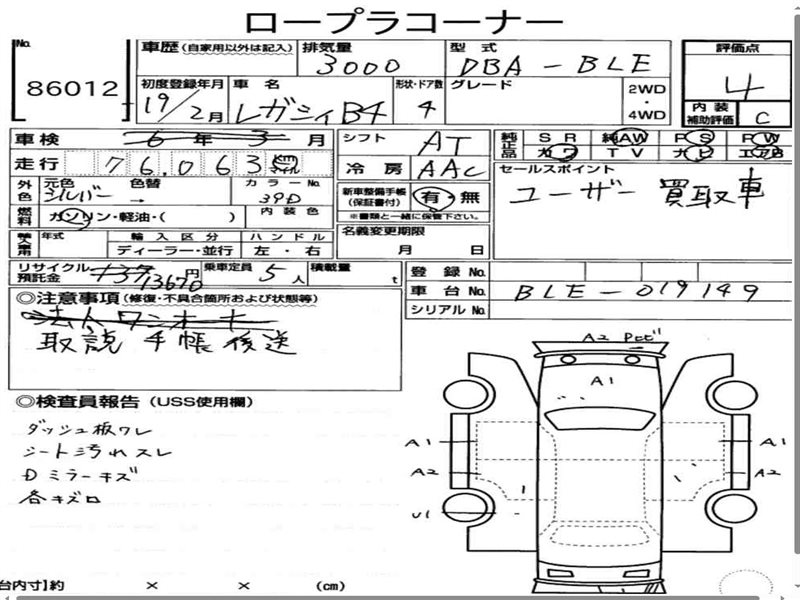 ロープラコーナー
No. 86012
車歴 (自家用以外は記入) 排気量 3000 型式 DBA-BLE 評価点 4
初度登録年月 19/2月 車名 レガシィB4 形状・ドア数 4 グレード 2WD・4WD
内装補助評価 C
車検 6年3月 シフト AT 純正品 SR 純AW PS PW
カワ TV ナビ エアB
走行 76,063 km マイル 冷房 AAC セールスポイント
ユーザー買取車
外色 元色 シルバー 色替 → カラーNo. 39D 新車整備手帳(保証書付) 有・無
※書類と一緒に保管下さい。
燃料 ガソリン・軽油・( ) 内装色
輸入車用 年式 輸入区分 ハンドル 名義変更期限
ディーラー・並行 左・右 月 日
リサイクル預託金 13670円 乗車定員 5人 積載量 t 登録No.
車台No. BLE-019149
シリアルNo.
◎注意事項(修復・不具合箇所および状態等)
法人ワンオーナー
取説 手帳 後送
◎検査員報告(USS使用欄)
ダッシュ板ワレ
シート汚れスレ
Dミラーキズ
各キズロ
A2 Pビ
A1
A1 A1
A2 A2
U1
台内寸】約 × × (cm)